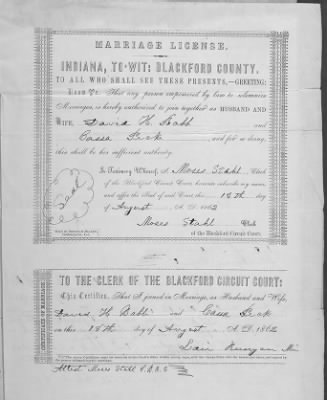 MARRIAGE LICENSE.
INDIANA, TO WIT: BLACKFORD COUNTY.
TO ALL WHO SHALL SEE THESE PRESENTS,—GREETING:
Know Ye: That any person empowered by law to solemnize
Marriages, is hereby authorized to join together as HUSBAND AND
WIFE, David H. Babb and
Cassa Geck , and for so doing,
this shall be his sufficient authority.
In Testimony Whereof, I, Moses Stahl Clerk
of the Blackford Circuit Court, hereunto subscribe my name,
and affix the Seal of said Court, this 15th day
of August A. D. 1862
Seal
Moses Stahl Clerk
of the Blackford Circuit Court.
CERTIFICATE OF MARRIAGE.
TO THE CLERK OF THE BLACKFORD CIRCUIT COURT:
This Certifies, That I joined in Marriage, as Husband and Wife,
David H Babb and Cassa Geck
on this 15th day of August A. D. 1862
Runyan
Attest Moses Stahl